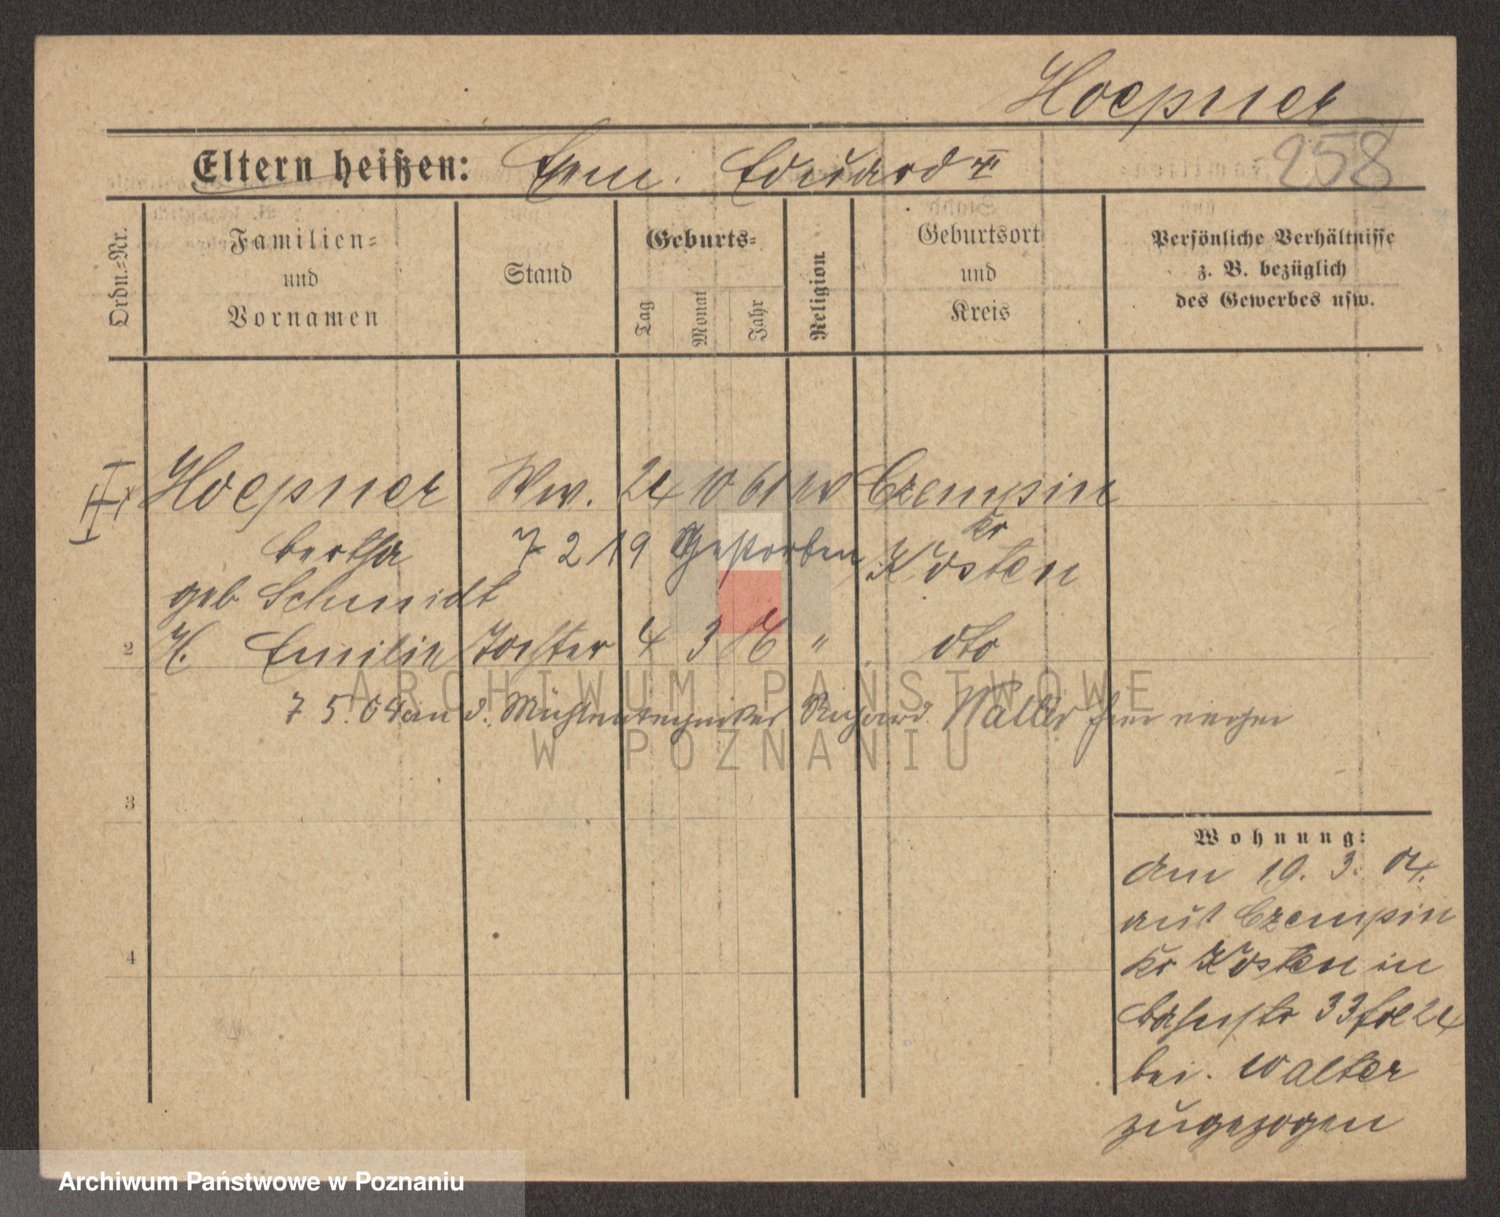 Hoepner
258
Eltern heißen: Eduard
Ordn.=Nr.
Familien=
und
Vornamen
Stand
Geburts=
Tag
Monat
Jahr
Religion
Geburtsort
und
Kreis
Persönliche Verhältnisse
z. B. bezüglich
des Gewerbes usw.
Hoepner Ww. 24 10 61 Czempin
bertha 7 2 19 Gestorben Kr Kosten
geb Schmidt
2 H. Emilie Tochter 4 3 " dto
7 5. 04 an d. Mühlentechniker Richard Walter
3
4
Wohnung:
Am 19. 3. 04.
aus Czempin
Kr Kosten in
bahnstr 33 24
bei. Walter
zugezogen
ARCHIWUM PAŃSTWOWE
W POZNANIU
Archiwum Państwowe w Poznaniu